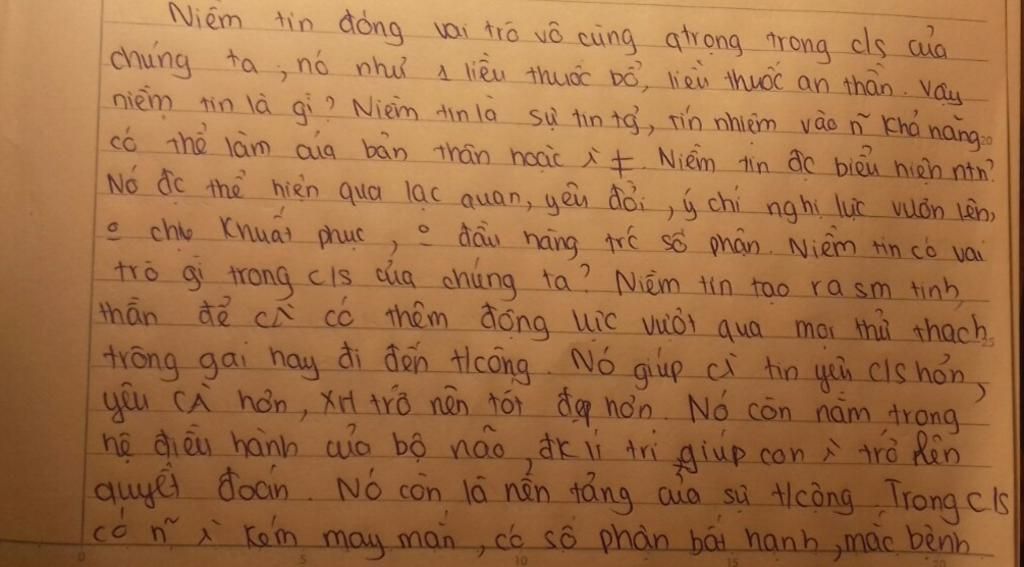 Niềm tin đóng vai trò vô cùng qtrọng trong c/s của
chúng ta, nó như 1 liều thuốc bổ, liều thuốc an thần. Vậy
niềm tin là gì? Niềm tin là sự tin tg̉, tín nhiệm vào n~ khả năng
có thể làm của bản thân hoặc ì ≠. Niềm tin đc biểu hiện ntn?
Nó đc thể hiện qua lạc quan, yêu đời, ý chí nghị lực vươn lên,
o chịu khuất phục, o đầu hàng trc số phận. Niềm tin có vai
trò gì trong c/s của chúng ta? Niềm tin tạo ra sm tinh
thần để cì có thêm động lực vượt qua mọi thử thách
trông gai hay đi đến t/công. Nó giúp cì tin yêu c/s hơn,
yêu cì hơn, XH trở nên tốt đẹp hơn. Nó còn nằm trong
hệ điều hành của bộ não, đk lí trí giúp con ì trở lên
quyết đoán. Nó còn là nền tảng của sự t/công. Trong c/s
có n~ ì kém may mắn, có số phận bất hạnh, mắc bệnh